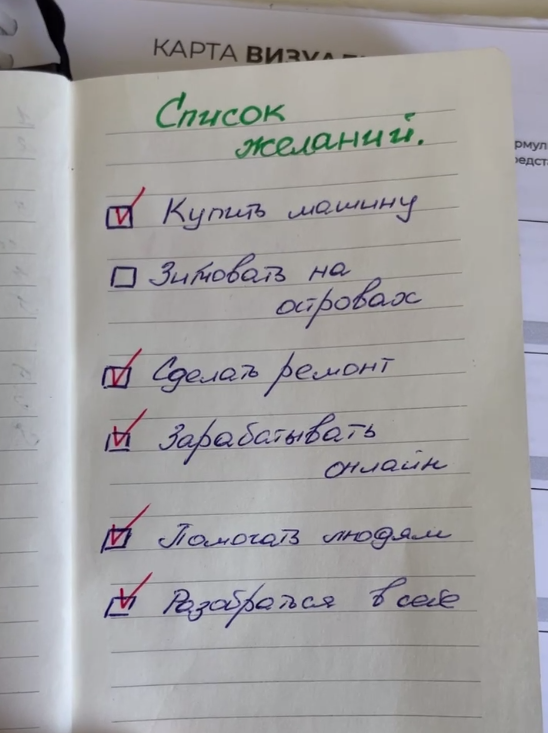 КАРТА ВИЗУАЛ
Список
желаний.
Купить машину
Зимовать на
островах
Сделать ремонт
Зарабатывать
онлайн
Помогать людям
Разобраться в себе